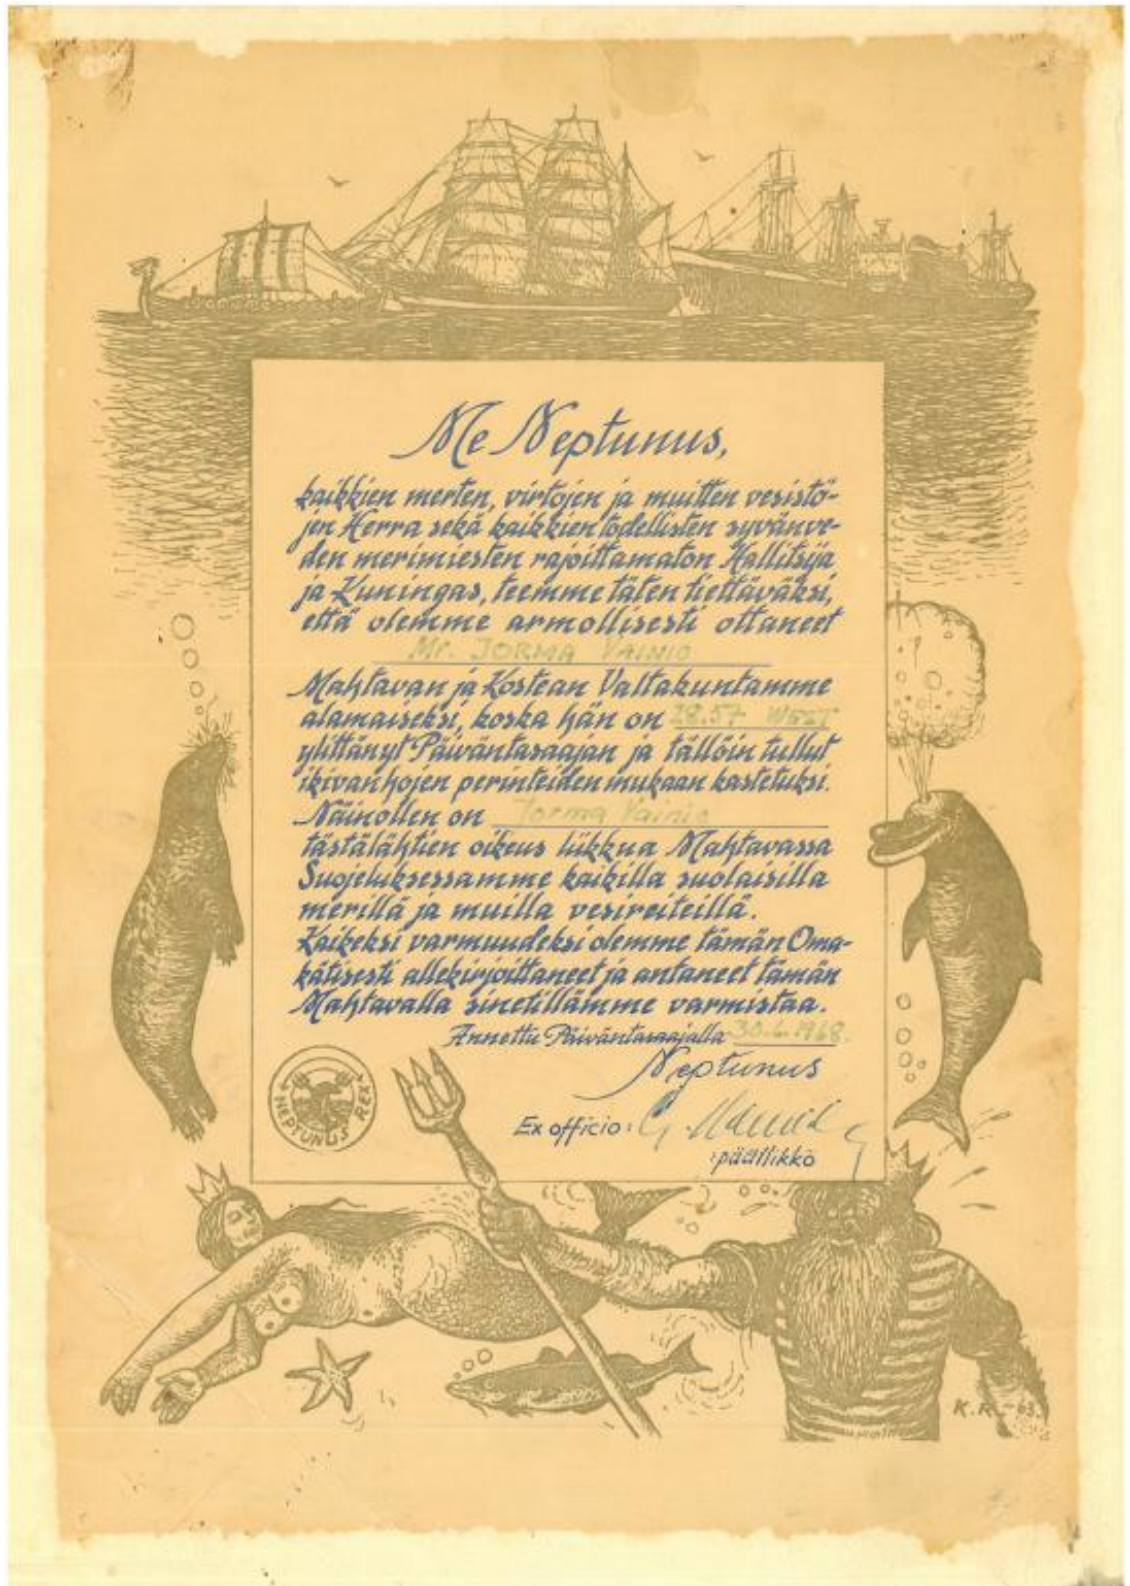 Me Neptunus,
kaikkien merten, virtojen ja muitten vesistö-
jen Herra sekä kaikkien todellisten syvänve-
den merimiesten rajoittamaton Hallitsija
ja Kuningas, teemme täten tiettäväksi,
että olemme armollisesti ottaneet
Mr. JORMA VAINIO
Mahtavan ja Kostean Valtakuntamme
alamaiseksi, koska hän on 28.57 WEST
ylittänyt Päiväntasaajan ja tällöin tullut
ikivanhojen perinteiden mukaan kastetuksi.
Näinollen on Jorma Vainio
tästälähtien oikeus liikkua Mahtavassa
Suojeluksessamme kaikilla suolaisilla
merillä ja muilla vesireiteillä.
Kaikeksi varmuudeksi olemme tämän Oma-
kätisesti allekirjoittaneet ja antaneet tämän
Mahtavalla sinetillämme varmistaa.
Annettu Päiväntasaajalla 30.6.1968.
Neptunus
Ex officio: G.
päällikkö
NEPTUNUS REX
K.R.-63.